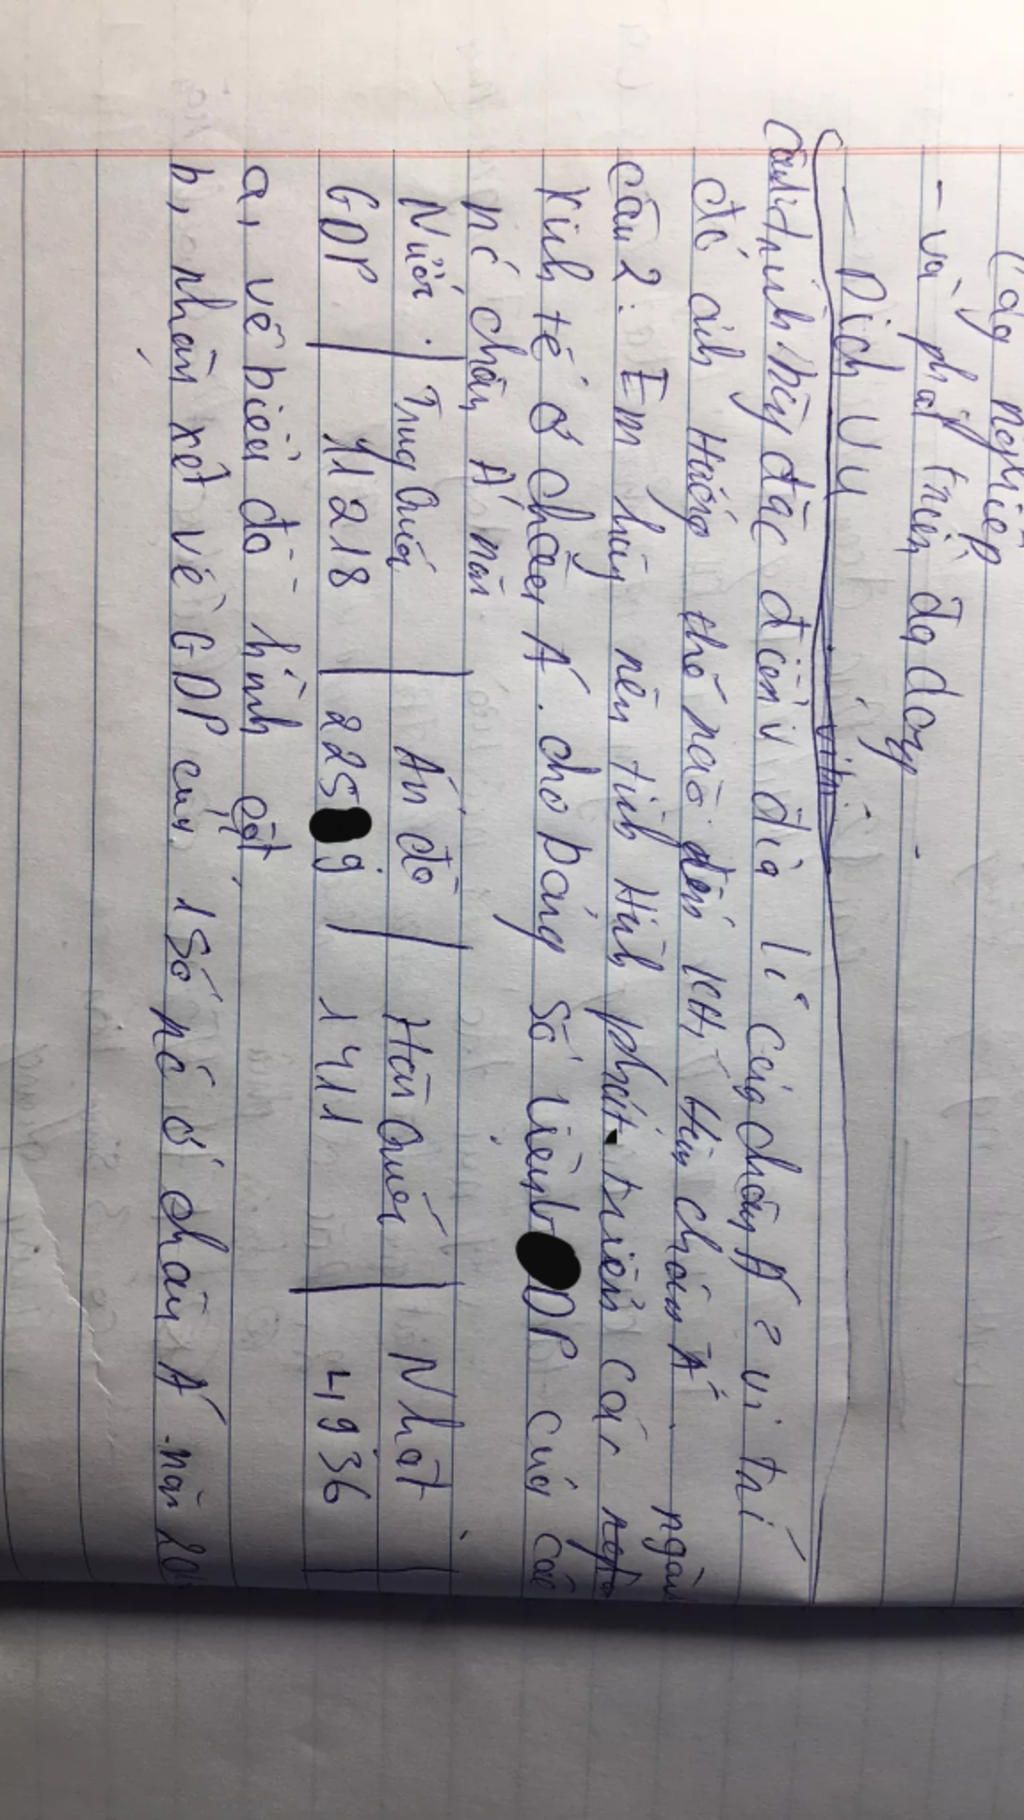 Cây nghiệp
- và phát triển đa dạng.
- Dịch Vụ
vị trí
Câu1: trình bày đặc điểm vị địa lí của châu Á? vị trí
đó ảnh Hưởng thế nào đến KHí Hậu châu Á.
ngàn
câu 2: Em hãy nêu tình Hình phát triển các
kinh tế ở châu Á. cho bảng số liệu DP của các
nc châu Á năm
Nước. | Trung Quốc | Ấn độ | Hàn Quốc | Nhật |
GDP | 11218 | 225 9 | 1411 | 4936
a, vẽ biểu đồ hình cột.
b, nhận xét về GDP của 1 số nc ở châu Á năm 20